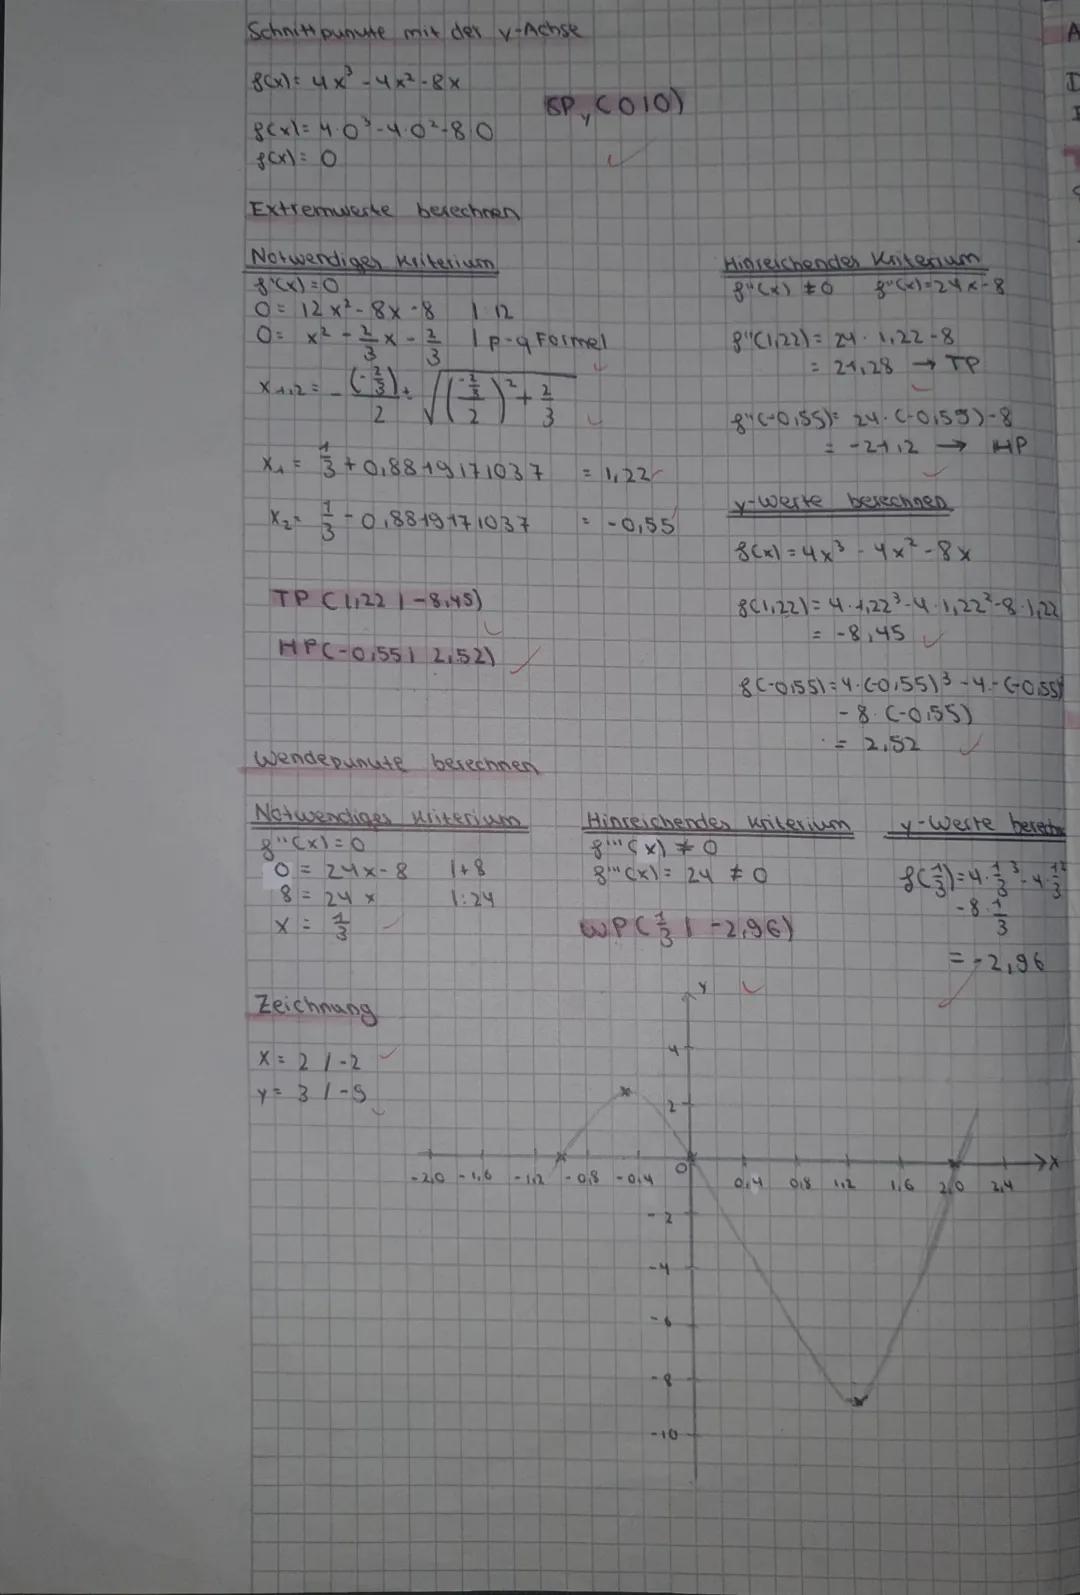 Schnittpunkte mit der y-Achse
f(x)= 4x³ - 4x² - 8x
SPy (0|0)
f(x)= 4·0³ - 4·0² - 8·0
f(x)= 0
Extremwerte berechnen
Notwendiges Kriterium
f'(x)=0
0= 12x² - 8x - 8 |:12
0= x² - 2/3 x - 2/3 | p-q Formel
x1,2 = - (-2/3)/2 ± √((-2/3 / 2)² + 2/3)
x1 = 1/3 + 0,8819171037 = 1,22
x2 = 1/3 - 0,8819171037 = -0,55
TP (1,22 | -8,45)
HP (-0,55 | 2,52)
Hinreichendes Kriterium
f''(x) ≠ 0 f''(x)=24x-8
f''(1,22)= 24 · 1,22 - 8
= 21,28 → TP
f''(-0,55)= 24 · (-0,55) - 8
= -21,2 → HP
y-Werte berechnen
f(x) = 4x³ - 4x² - 8x
f(1,22)= 4·1,22³ - 4·1,22² - 8·1,22
= -8,45
f(-0,55)= 4·(-0,55)³ - 4·(-0,55)
- 8·(-0,55)
= 2,52
Wendepunkte berechnen
Notwendiges Kriterium
f''(x)=0
0 = 24x - 8 |+8
8 = 24x |:24
x = 1/3
Hinreichendes Kriterium
f'''(x) ≠ 0
f'''(x)= 24 ≠ 0
WP (1/3 | -2,96)
y-Werte
f(1/3)=4·1/3³ - 4·1/3²
- 8·1/3
= -2,96
Zeichnung
x = 2 / -2
y = 3 / -9
y
4
2
0
-2,0 -1,6 -1,2 -0,8 -0,4 0,4 0,8 1,2 1,6 2,0 2,4 x
-2
-4
-6
-8
-10